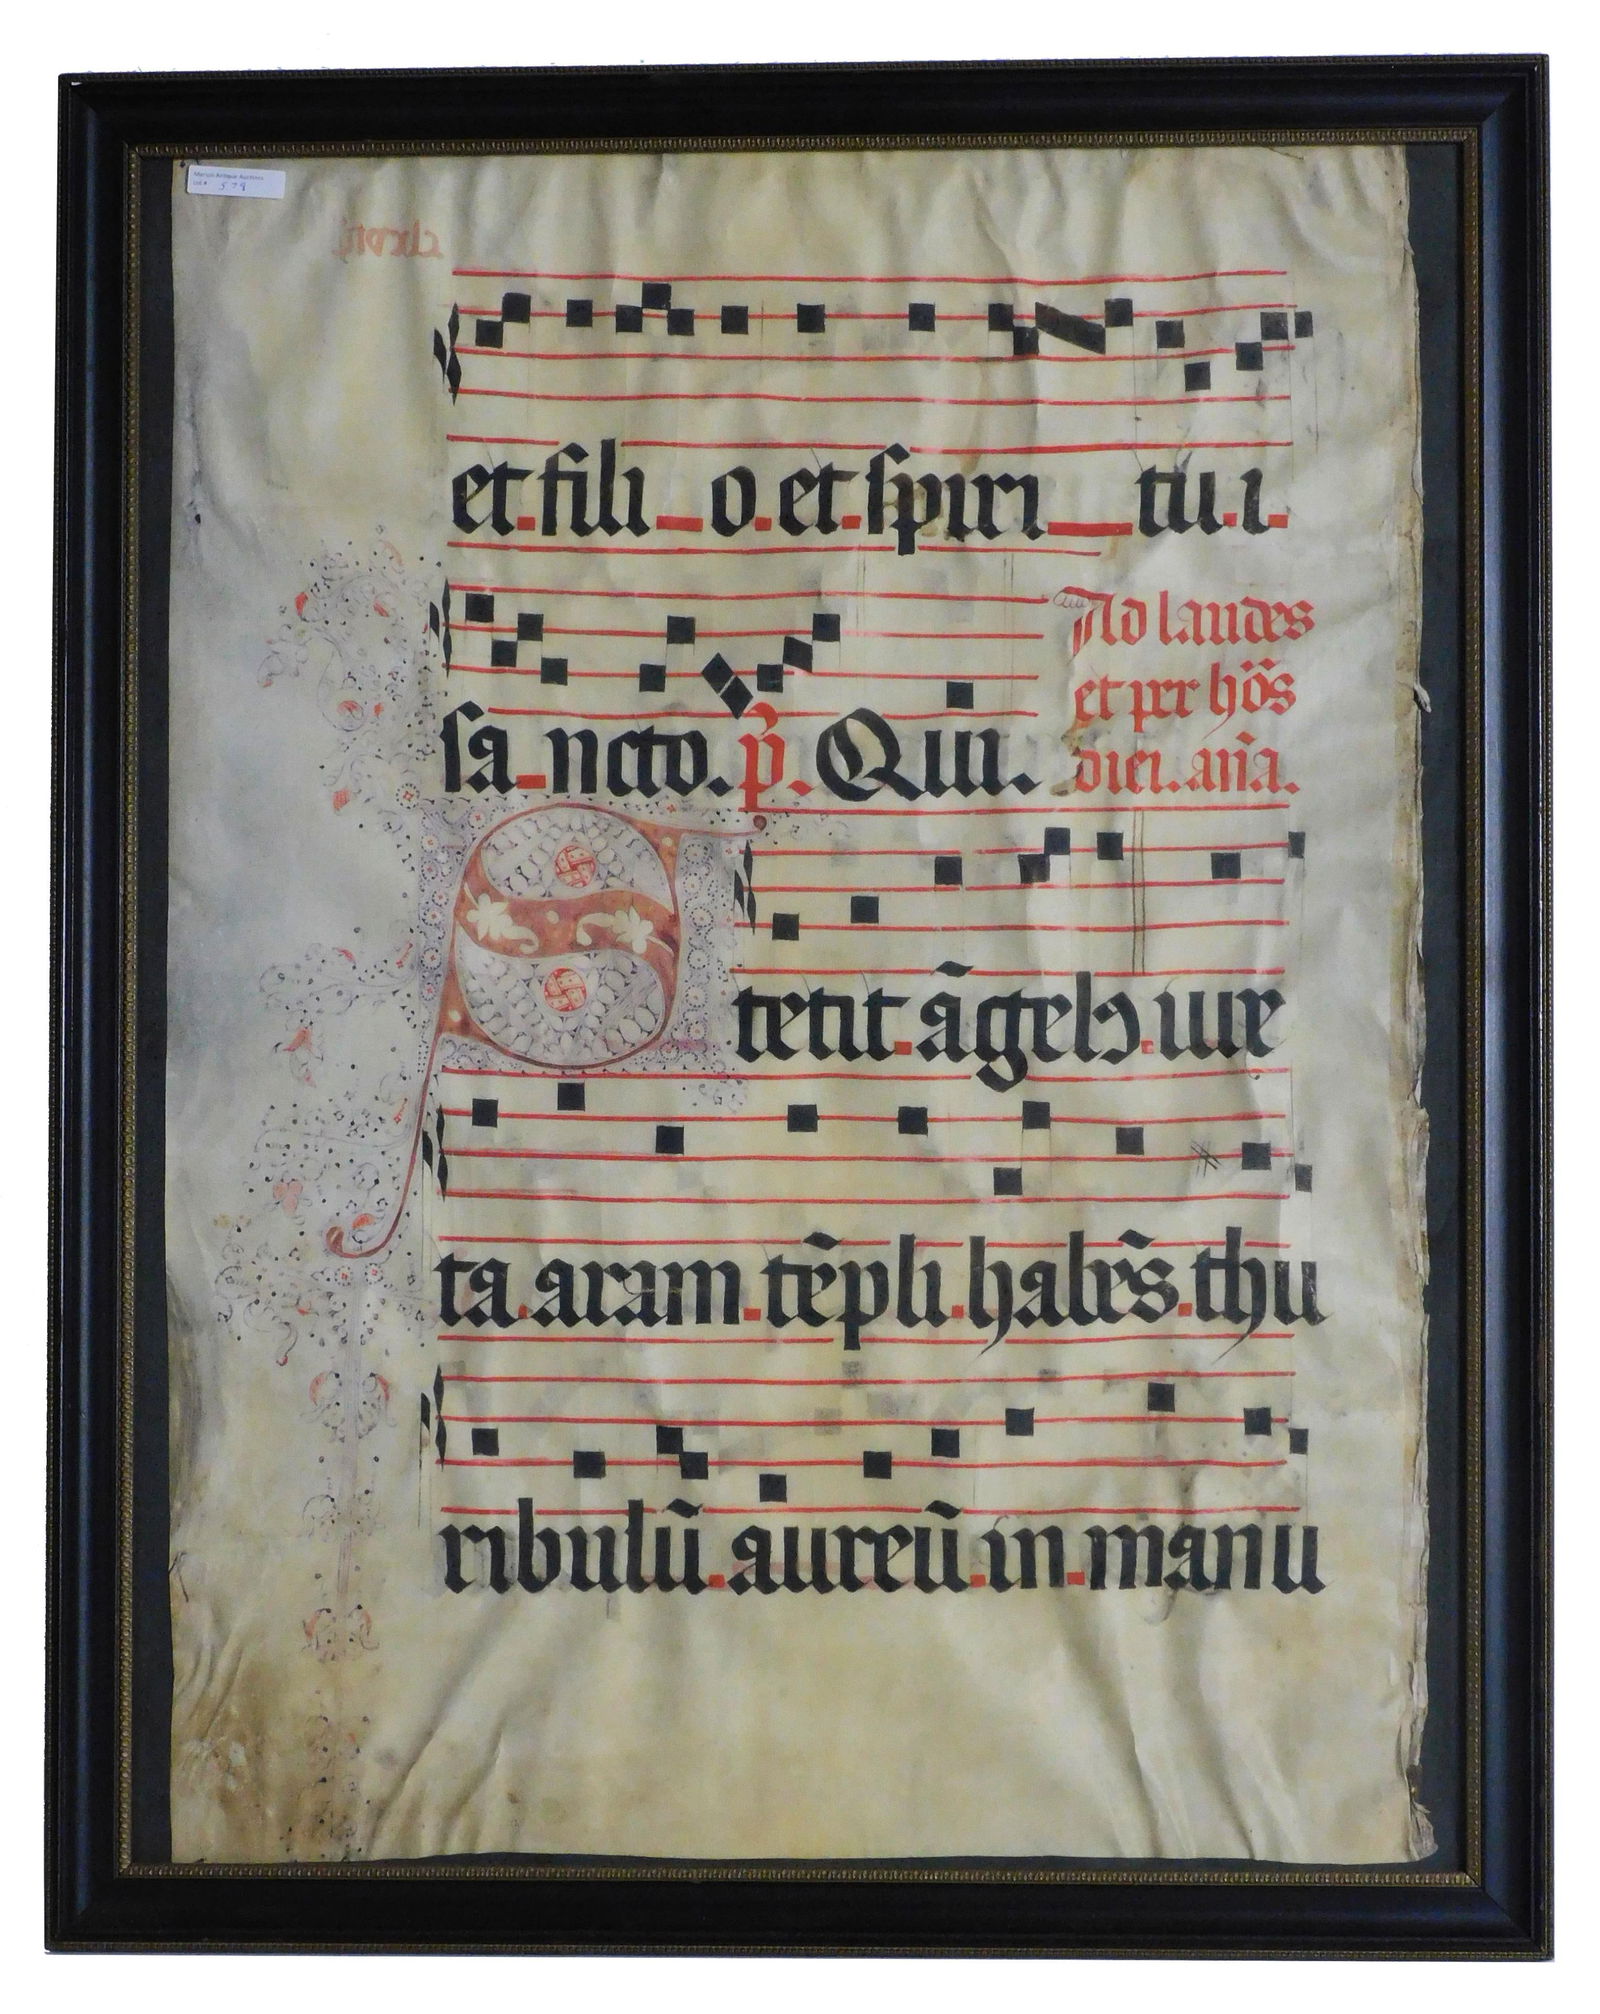 Marion Antique Auctions
Lot # 578
et fili o et spiri tu i
sa ncto. p̄. Qui.
Ad laudes
et per hōs
diei. an̄a.
Stetit āgelꝰ iux
ta aram tēpli habēs thu
ribulū aureū in manu